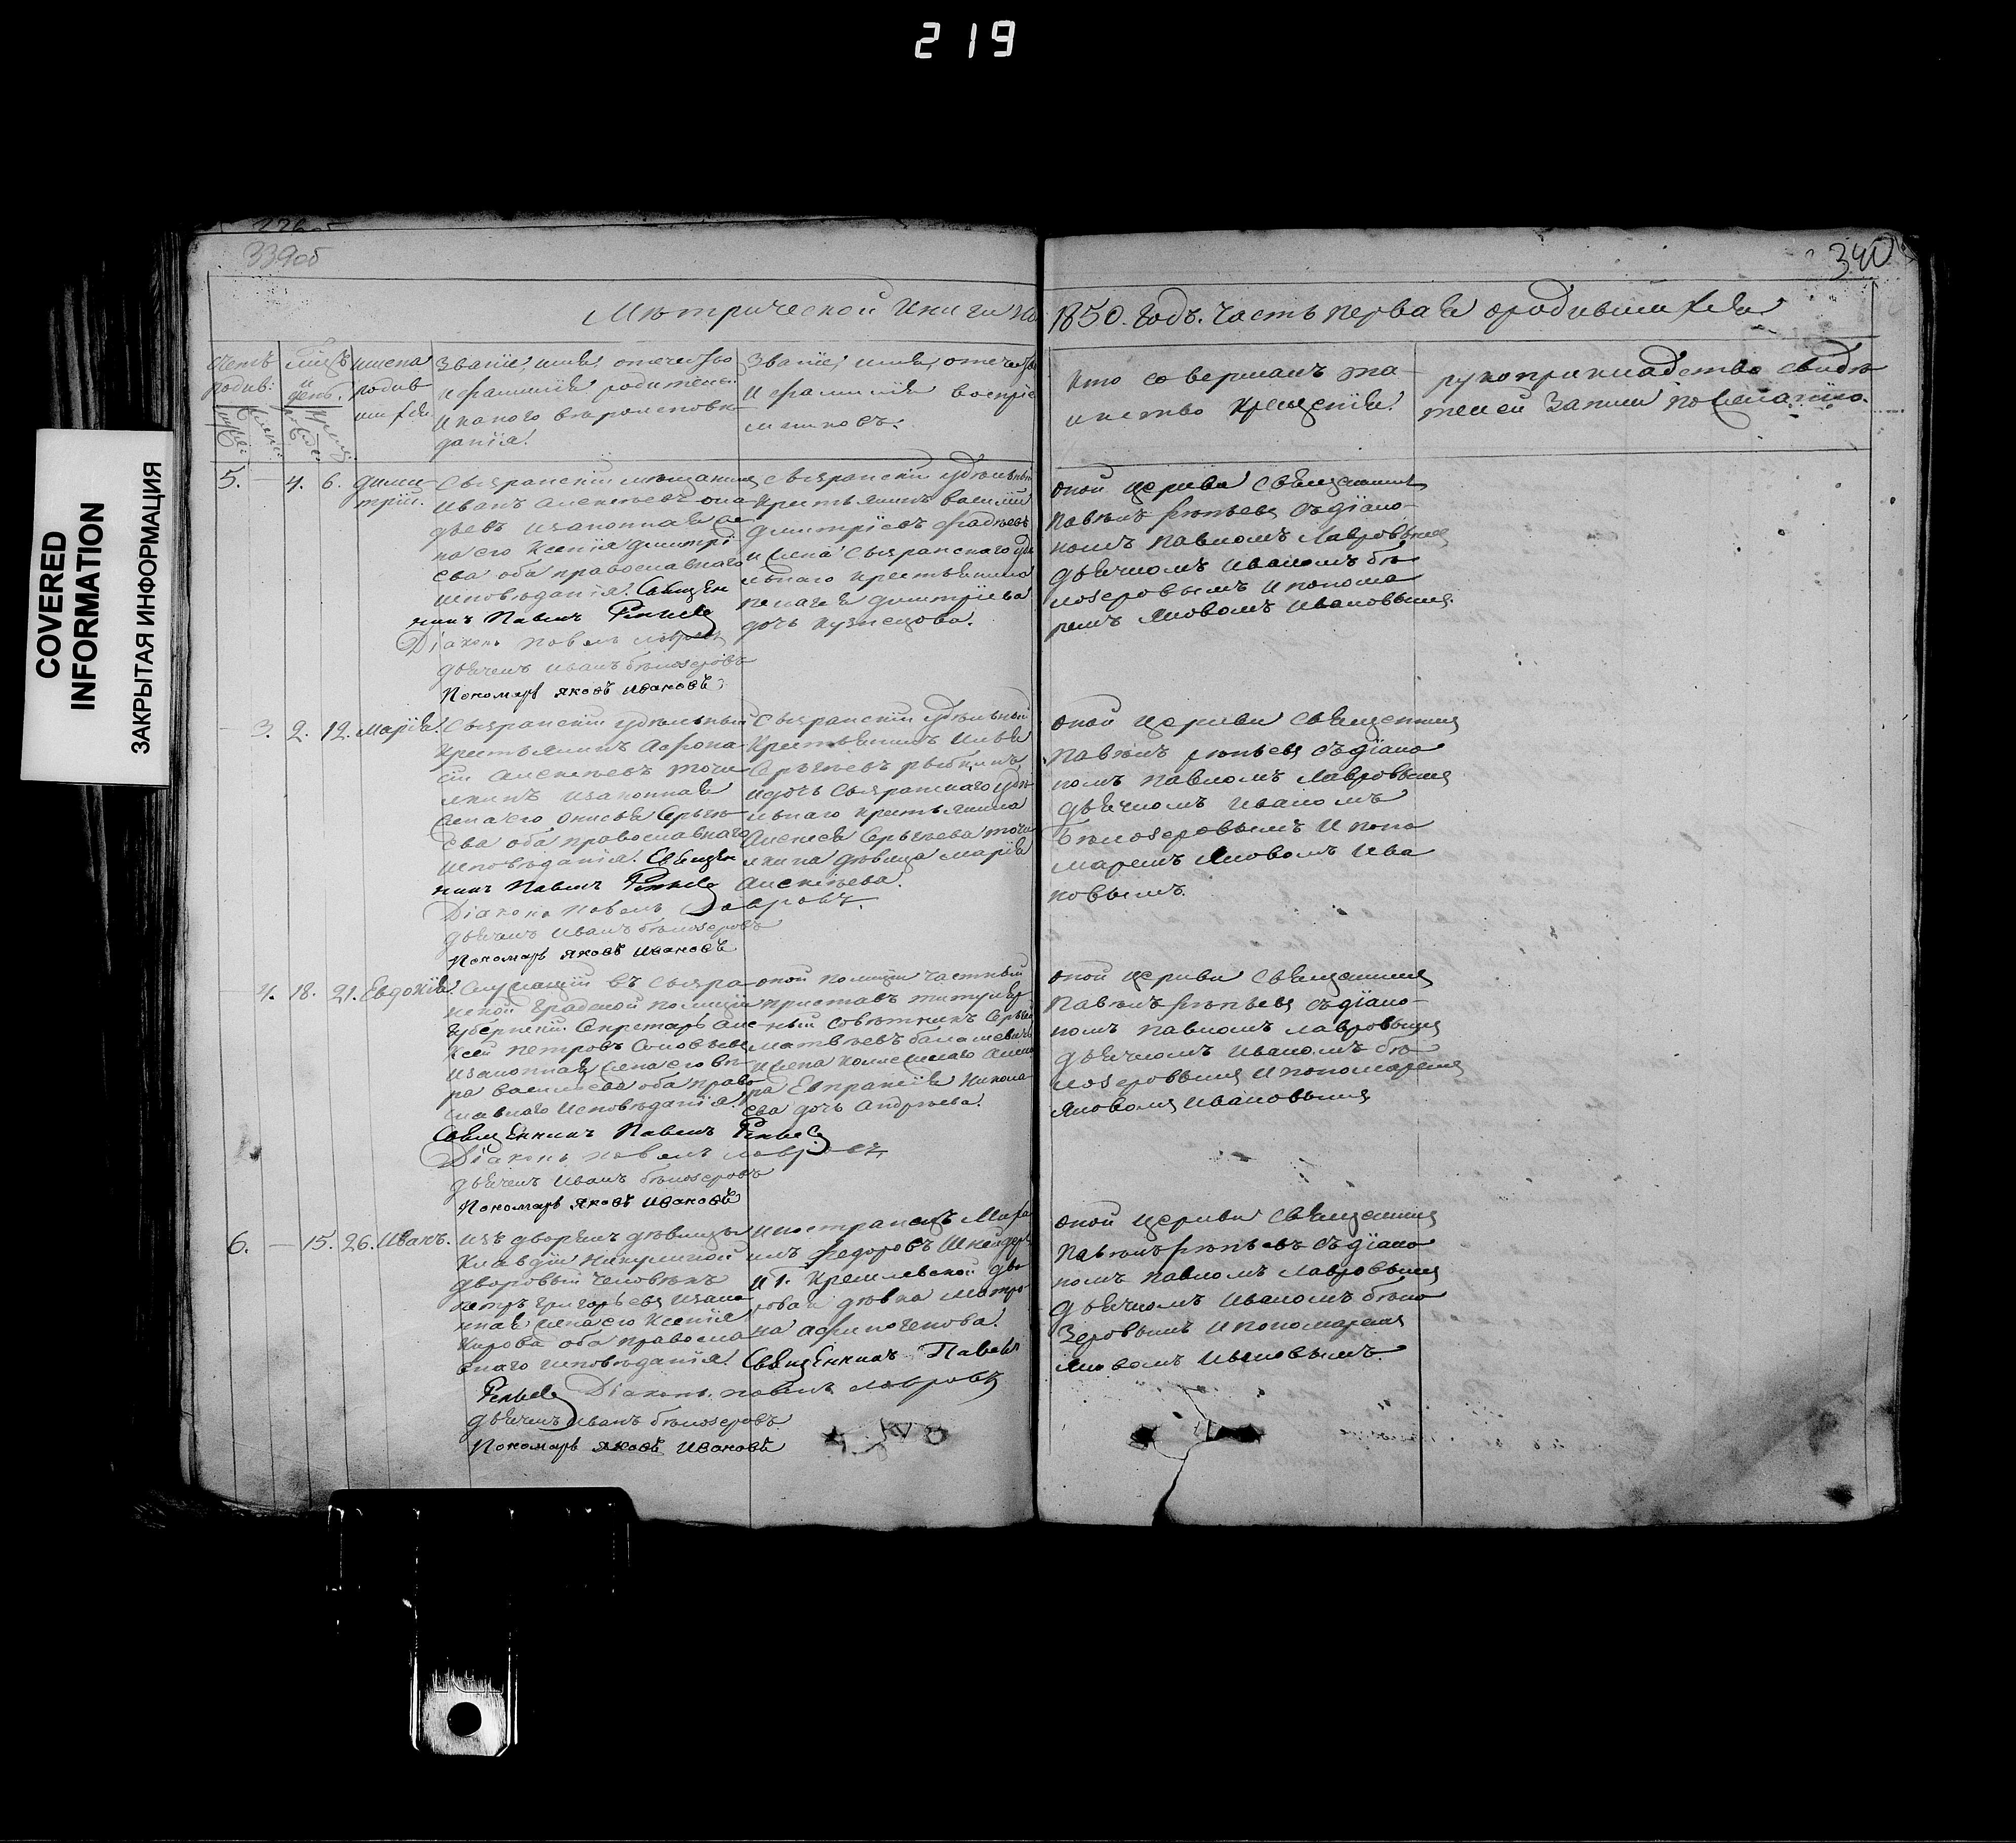 219
COVERED
INFORMATION
ЗАКРЫТАЯ ИНФОРМАЦИЯ
339об
340
Метрической Книги на 1850. Годъ. Часть первая о родившихся
Счетъ родив:
мѣсяцъ и день.
имена родившихся
Званіе, имя, отечество
и фамилія родителей
и какого вѣроисповѣ-
данія.
Званіе, имя, отечество
и фамилія воспріе-
мниковъ.
Кто совершалъ та-
инство Крещенія.
рукоприкладство свидѣ-
телей записи по желанію.
5. — 4. 6. Дими-
трій.
Сызранскій мѣщанинъ
Иванъ Алексѣевъ
и законная же-
на его Ксенія Димитрі-
ева оба православнаго
исповѣданія. Священ
никъ Павелъ Рѣпьевъ
Діаконъ Павелъ Лавровъ
дьячекъ Иванъ Бѣлозеровъ
Пономарь Яковъ Ивановъ
Сызранскій удѣльный
крестьянинъ Василій
Димитріевъ Фадѣевъ
и жена Сызранскаго удѣ
льнаго крестьянина
Пелагея Димитріева
дочь Кузнецова.
оной церкви Священникъ
Павелъ Рѣпьевъ съ діако-
номъ Павломъ Лавровымъ
дьячкомъ Иваномъ Бѣ
лозеровымъ и понома
ремъ Яковомъ Ивановымъ.
3. 2. 12. Марія.
Сызранскій удѣльный
крестьянинъ Афона-
сій Алексѣевъ Точи
лкинъ и законная
жена его Анисья Сергѣ
ева оба православнаго
исповѣданія. Священ
никъ Павелъ Рѣпьевъ
Діаконъ Павелъ Лавровъ
дьячекъ Иванъ Бѣлозеровъ
Пономарь Яковъ Ивановъ
Сызранскій удѣльный
крестьянинъ Илья
Сергѣевъ Рыбкинъ
и дочь Сызранскаго удѣ
льнаго крестьянина
Алексея Сергѣева Точи
лкина дѣвица Марія
Алексѣева.
оной церкви Священникъ
Павелъ Рѣпьевъ съ діако
номъ Павломъ Лавровымъ
дьячкомъ Иваномъ
Бѣлозеровымъ и поно
маремъ Яковомъ Ива
новымъ.
4. 18. 21. Евдокія.
Служащій въ Сызра-
нской Градской полиціи
Губернскій Секретарь Але-
ксей Петровъ Соловьевъ
и законная жена его Вѣ-
ра Васильева оба право
славнаго исповѣданія.
Священникъ Павелъ Рѣпьевъ
Діаконъ Павелъ Лавровъ
дьячекъ Иванъ Бѣлозеровъ
Пономарь Яковъ Ивановъ
оной полиціи частный
приставъ титуляр-
ный совѣтникъ Сергѣй
Матвѣевъ
и жена
ра Евпраксія Никола-
ева дочь Андреева.
оной церкви Священникъ
Павелъ Рѣпьевъ съ діако-
номъ Павломъ Лавровымъ
дьячкомъ Иваномъ Бѣ
лозеровымъ и пономаремъ
Яковомъ Ивановымъ
6. — 15. 26. Иванъ.
изъ дворянъ дѣвицы
Клавдіи Никулиной
дворовый человѣкъ
Петръ Григорьевъ и зако
нная жена его Ксенія
Карпова оба православ
наго исповѣданія. Священникъ Павелъ
Рѣпьевъ Діаконъ Павелъ Лавровъ
дьячекъ Иванъ Бѣлозеровъ
Пономарь Яковъ Ивановъ
иностранецъ Миха
илъ Федоровъ Шнейдеръ
и г. Кремлевской дво
ровая дѣвка Матре
на Афиногенова.
оной церкви Священникъ
Павелъ Рѣпьевъ съ діако
номъ Павломъ Лавровымъ
дьячкомъ Иваномъ Бѣло
зеровымъ и пономаремъ
Яковомъ Ивановымъ.